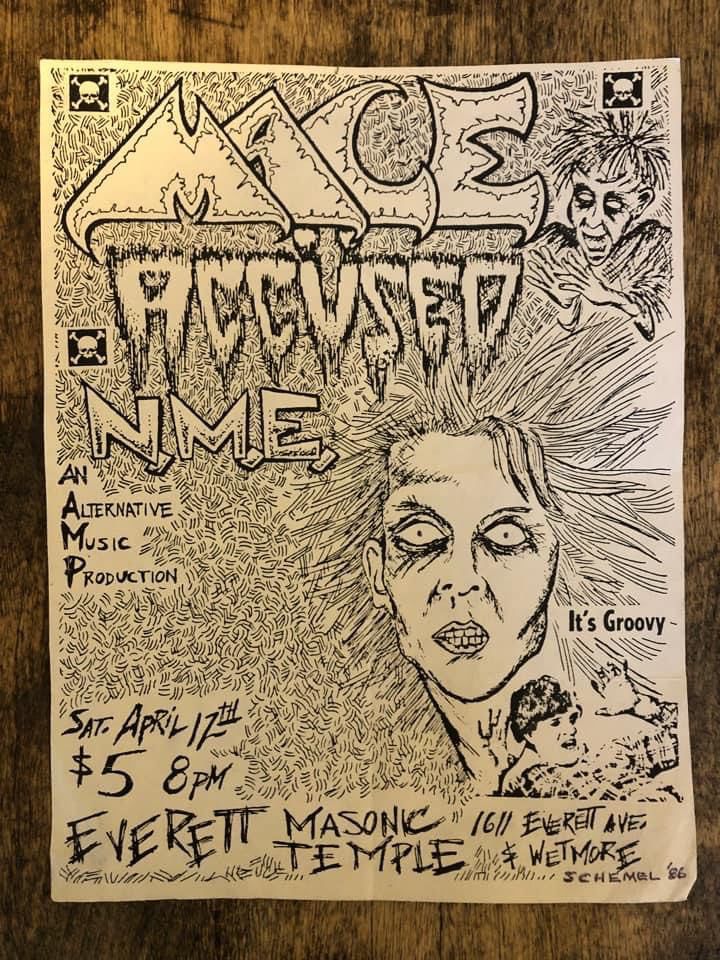 MACE
ACCUSED
N.M.E.
AN
ALTERNATIVE
MUSIC
PRODUCTION
It's Groovy
SAT. APRIL 12TH
$5 8PM
EVERETT MASONIC TEMPLE
1611 EVERETT AVE.
& WETMORE
SCHEMEL '86